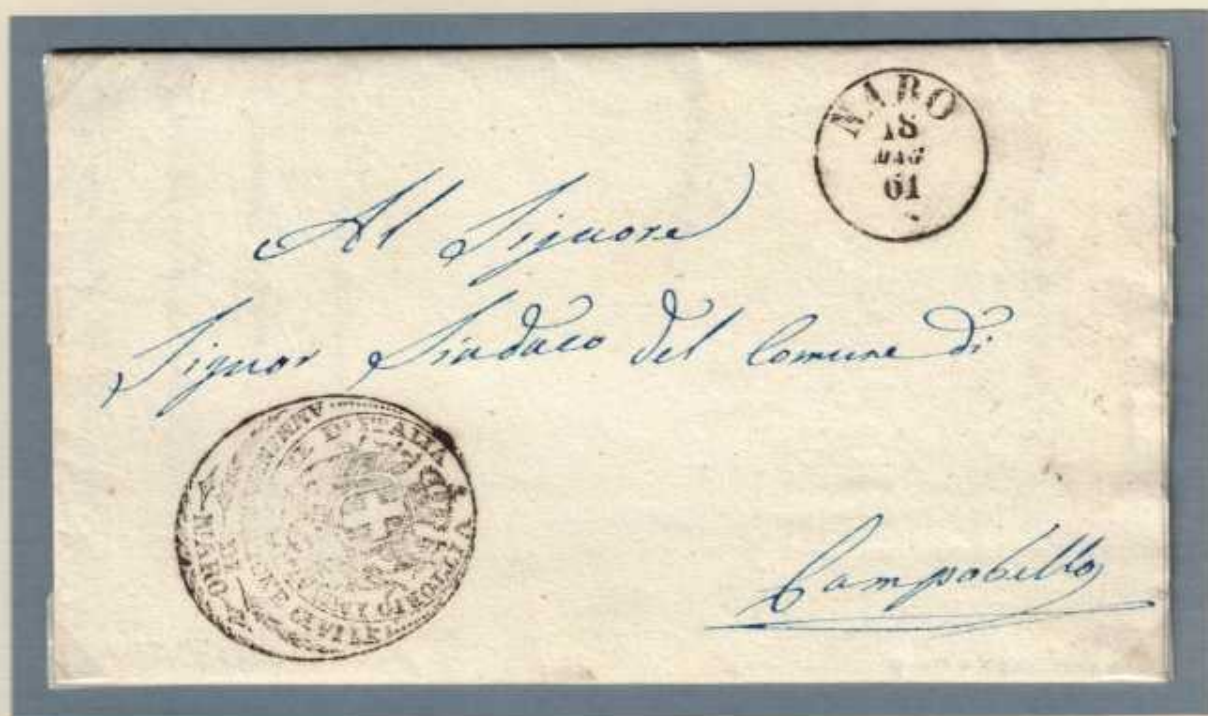 NARO
18
MAG
61
Al Signore
Signor Sindaco del Comune di
Campobello
D'ITALIA
VITTORIO
CIVILE
NARO